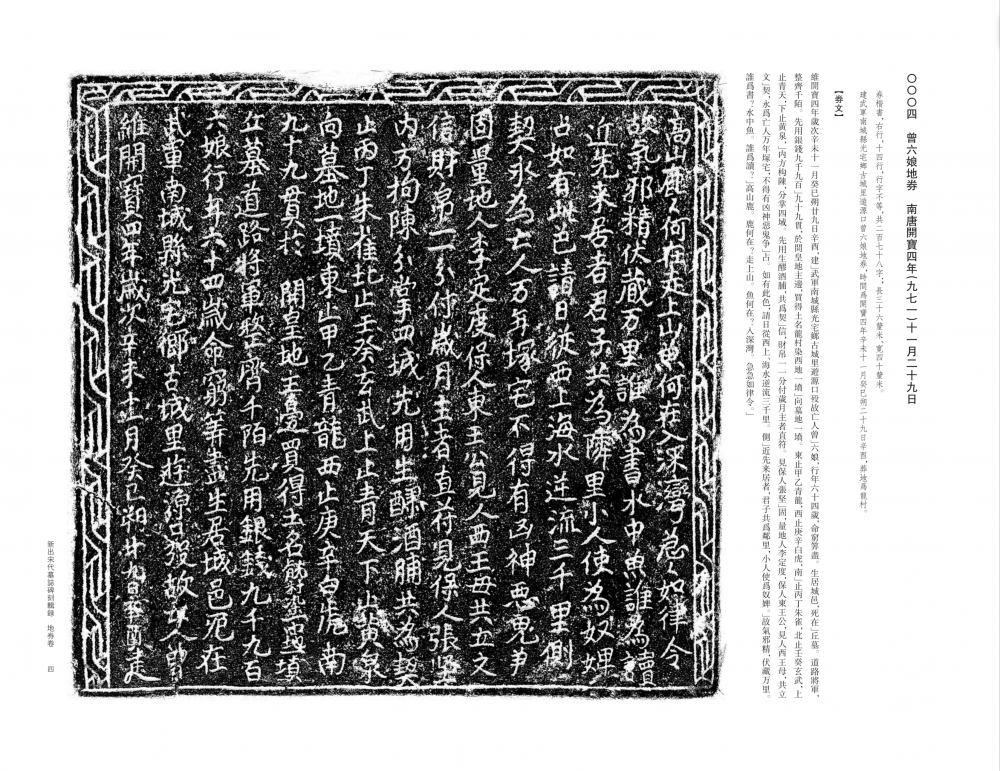 〇〇〇四　曾六娘地券　南唐開寶四年(九七一)十一月二十九日
券楷書,右行,十四行,行字不等,共二百七十八字,長三十六釐米、寬四十釐米。
建武軍南城縣光宅鄉古城里遊源口曾六娘地券,時間爲開寶四年辛未十一月癸巳朔二十九日辛酉,葬地爲龍村。
【券文】
維開寶四年歲次辛未十一月癸巳朔廿九日辛酉,建」武軍南城縣光宅鄉古城里遊源口歿故亡人曾」六娘,行年六十四歲,命窮筭盡。生居城邑,死在」丘墓。道路將軍,
整齊千陌。先用銀錢九千九百」九十九貫,於開皇地主邊,買得土名龍村染西地一墳」向墓地一墳。東止甲乙青龍,西止庚辛白虎,南」止丙丁朱雀,北止壬癸玄武,上
止青天,下止黃泉,」內方拘陳,分掌四域。先用生醪酒脯,共爲契」信,財帛一一分付歲月主者直符。見保人張堅」固,量地人李定度,保人東王公,見人西王母,共立
文」契,永爲亡人万年塚宅,不得有凶神惡鬼爭」占。如有此色,請日從西上,海水逆流三千里。側」近先来居者,君子共爲鄰里,小人使爲奴婢。」故氣邪精,伏藏万里。
誰爲書?水中魚。誰爲讀?」高山鹿。鹿何在?走上山。魚何在?入深灣。急急如律令。」
維開寶四年歲次辛未十一月癸巳朔廿九日辛酉建
武軍南城縣光宅鄉古城里遊源口歿故亡人曾
六娘行年六十四歲命窮筭盡生居城邑死在
丘墓道路將軍整齊千陌先用銀錢九千九百
九十九貫於開皇地主邊買得土名龍村染西地一墳
向墓地一墳東止甲乙青龍西止庚辛白虎南
止丙丁朱雀北止壬癸玄武上止青天下止黃泉
內方拘陳分掌四域先用生醪酒脯共為契
信財帛一一分付歲月主者直符見保人張堅
固量地人李定度保人東王公見人西王母共立文
契永為亡人万年塚宅不得有凶神惡鬼爭
占如有此色請日從西上海水逆流三千里側
近先来居者君子共為隣里小人使為奴婢
故氣邪精伏藏万里誰為書水中魚誰為讀
高山鹿鹿何在走上山魚何在入深灣急急如律令
新出宋代墓誌碑刻輯録　地券卷　四